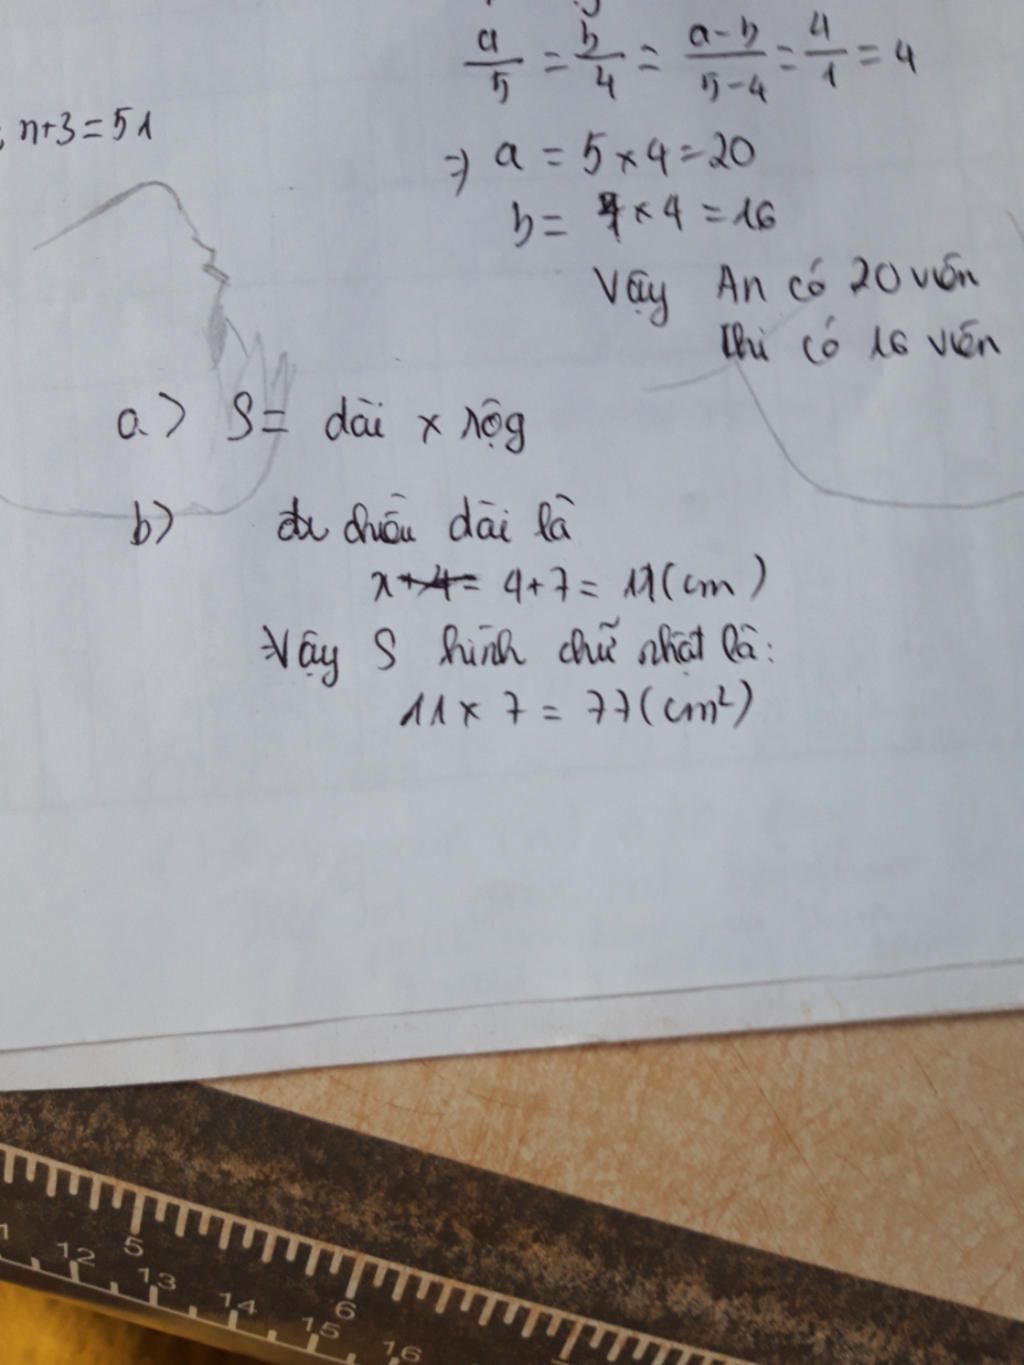 a/5 = b/4 = a-b/5-4 = 4/1 = 4
n+3=51
=> a = 5×4=20
b= 4×4=16
Vậy An có 20 viên
Chi có 16 viên
a> S= dài × rộg
b> chiều dài là
4+7= 11(cm)
=>Vậy S hình chữ nhật là:
11× 7 = 77(cm²)
5
6
12
13
14
15
16